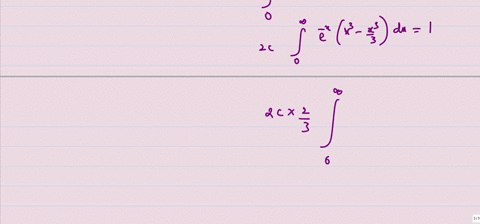 ∫
0
2c ∫₀^∞ e^-x (x³ - x³/3) dx = 1
2c × 2/3 ∫₆^∞
3/3